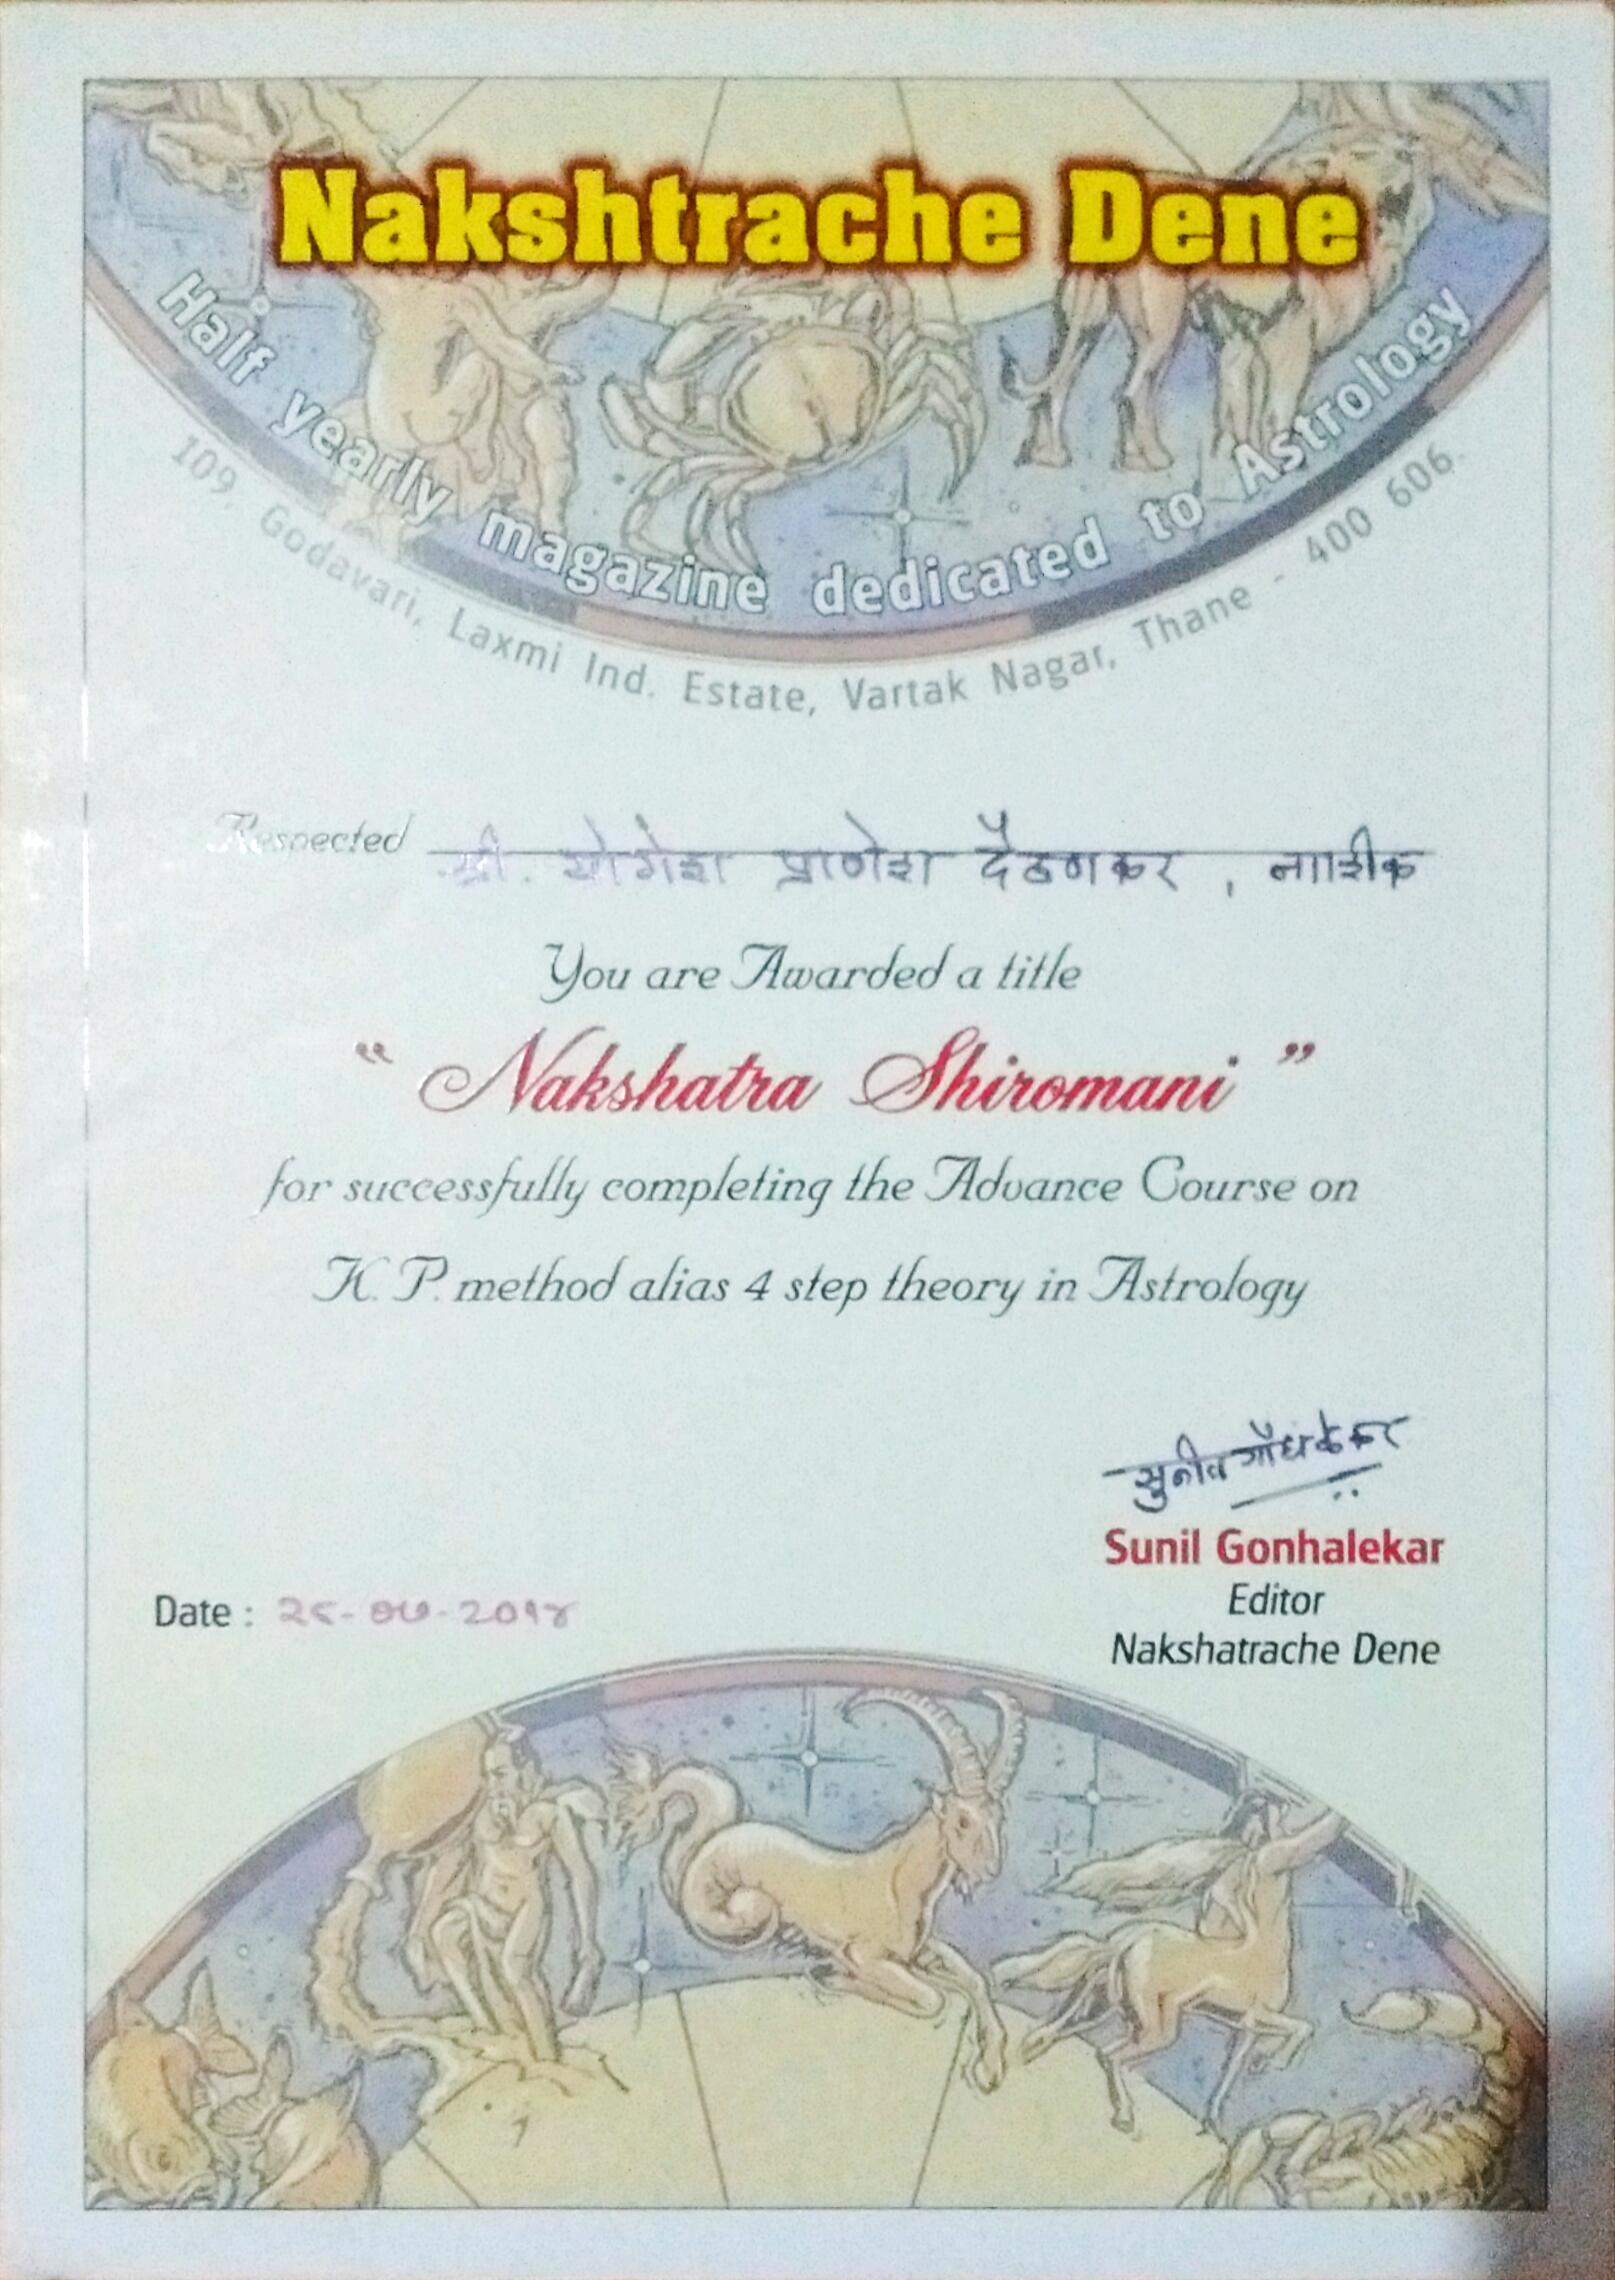 Nakshtrache Dene
Half yearly magazine dedicated to Astrology
109, Godavari, Laxmi Ind. Estate, Vartak Nagar, Thane - 400 606.
Respected श्री. योगेश प्राणेश दैठणकर , नाशिक
You are Awarded a title
“ Nakshatra Shiromani ”
for successfully completing the Advance Course on
K. P. method alias 4 step theory in Astrology
सुनील गोंधळेकर
Sunil Gonhalekar
Editor
Nakshatrache Dene
Date : २८-०७-२०१४